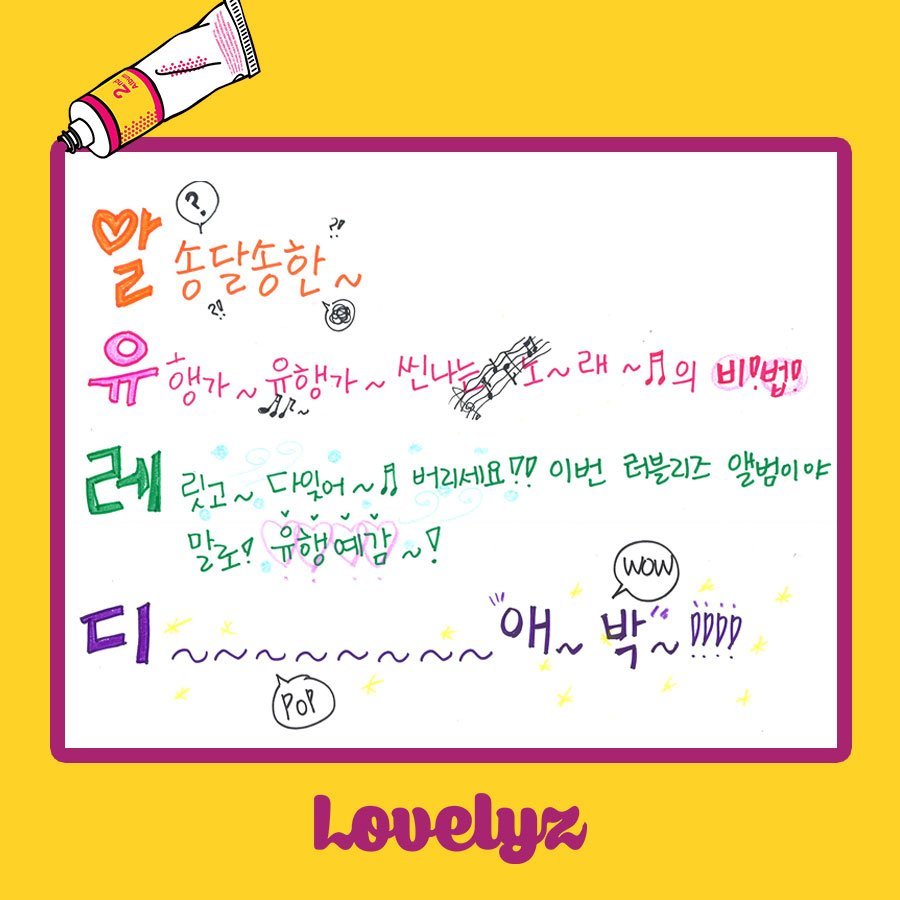 2nd Album
?
알송달송한~
?!
?!
유행가~ 유행가~ 씐나는 노~래~♬의 비!법!
레릿고~ 다잊어~♬ 버리세요!? 이번 러블리즈 앨범이야
말로! 유행예감~!
WOW
디~~~~~~~~ "애~ 박"~!!!!
POP
Lovelyz